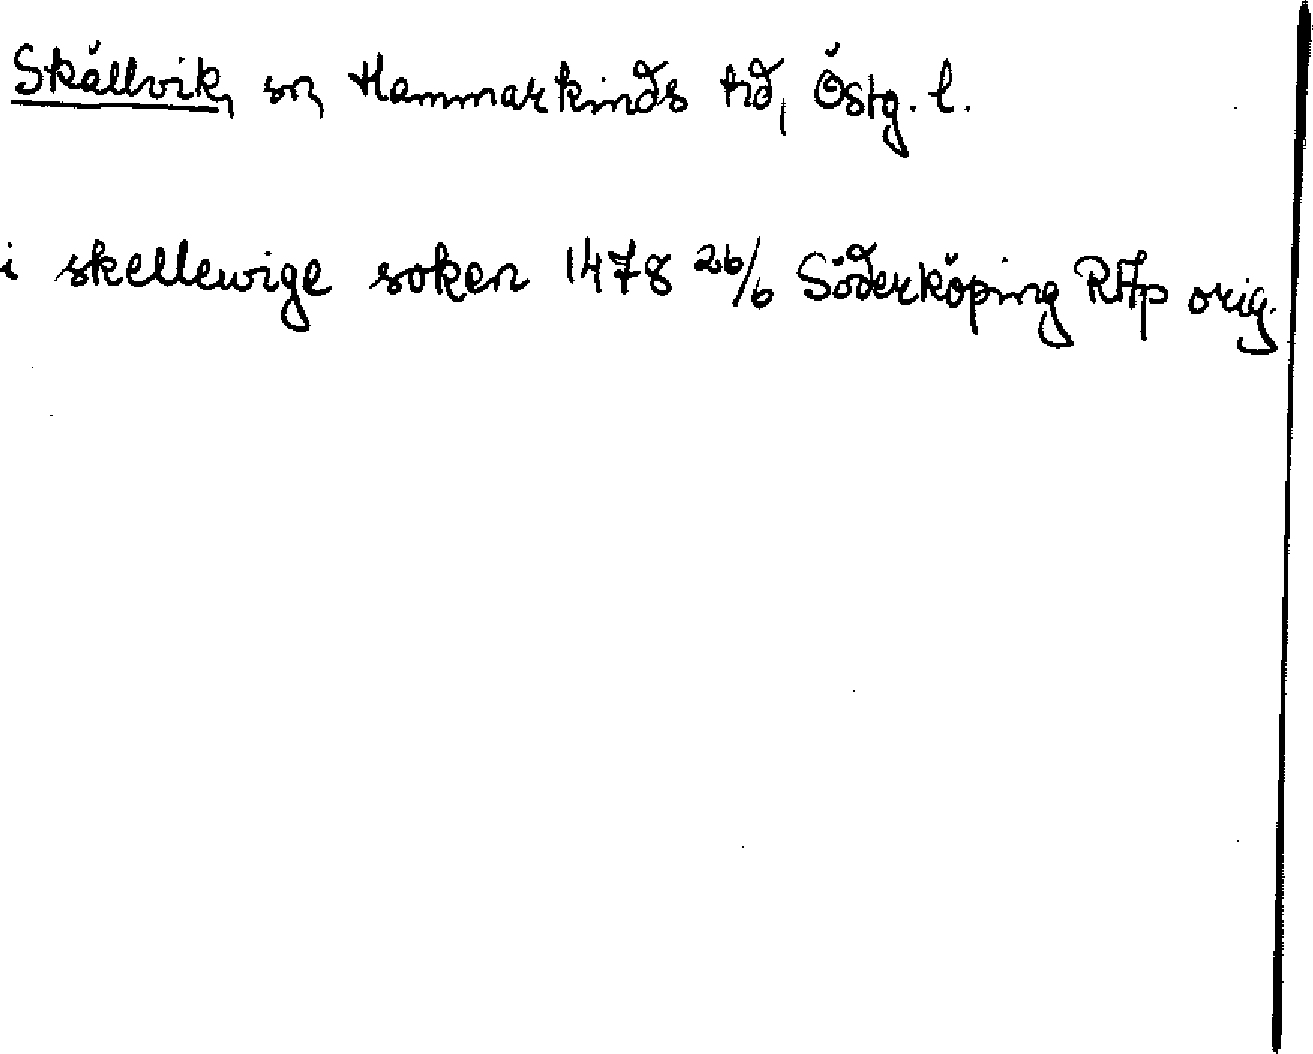 Skällvik, sn, Hammarkinds hd, Östg. l.
i skellewige soken 1478 26/6 Söderköping RAp orig.